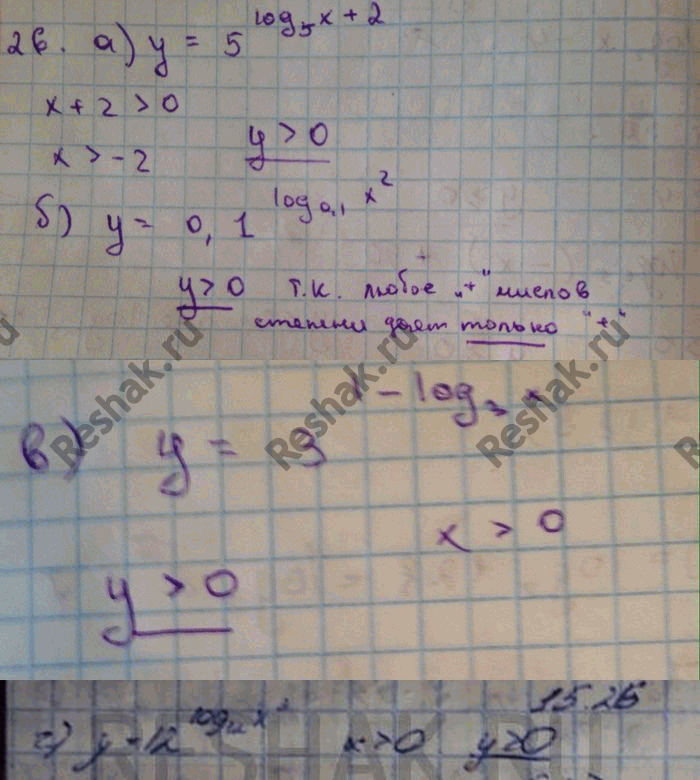 26. а) y = 5^log₅x+2
x + 2 > 0
y > 0
x > -2
б) y = 0,1^log₀,₁ x²
y > 0 т.к. любое „+“ число в
степени дает только "+"
Reshak.ru
Reshak.ru Reshak.ru
в) y = 3^1-log₃x
x > 0
y > 0
15.26
г) y = 12^log₁₂x² x > 0 y > 0
RESHAK.RU